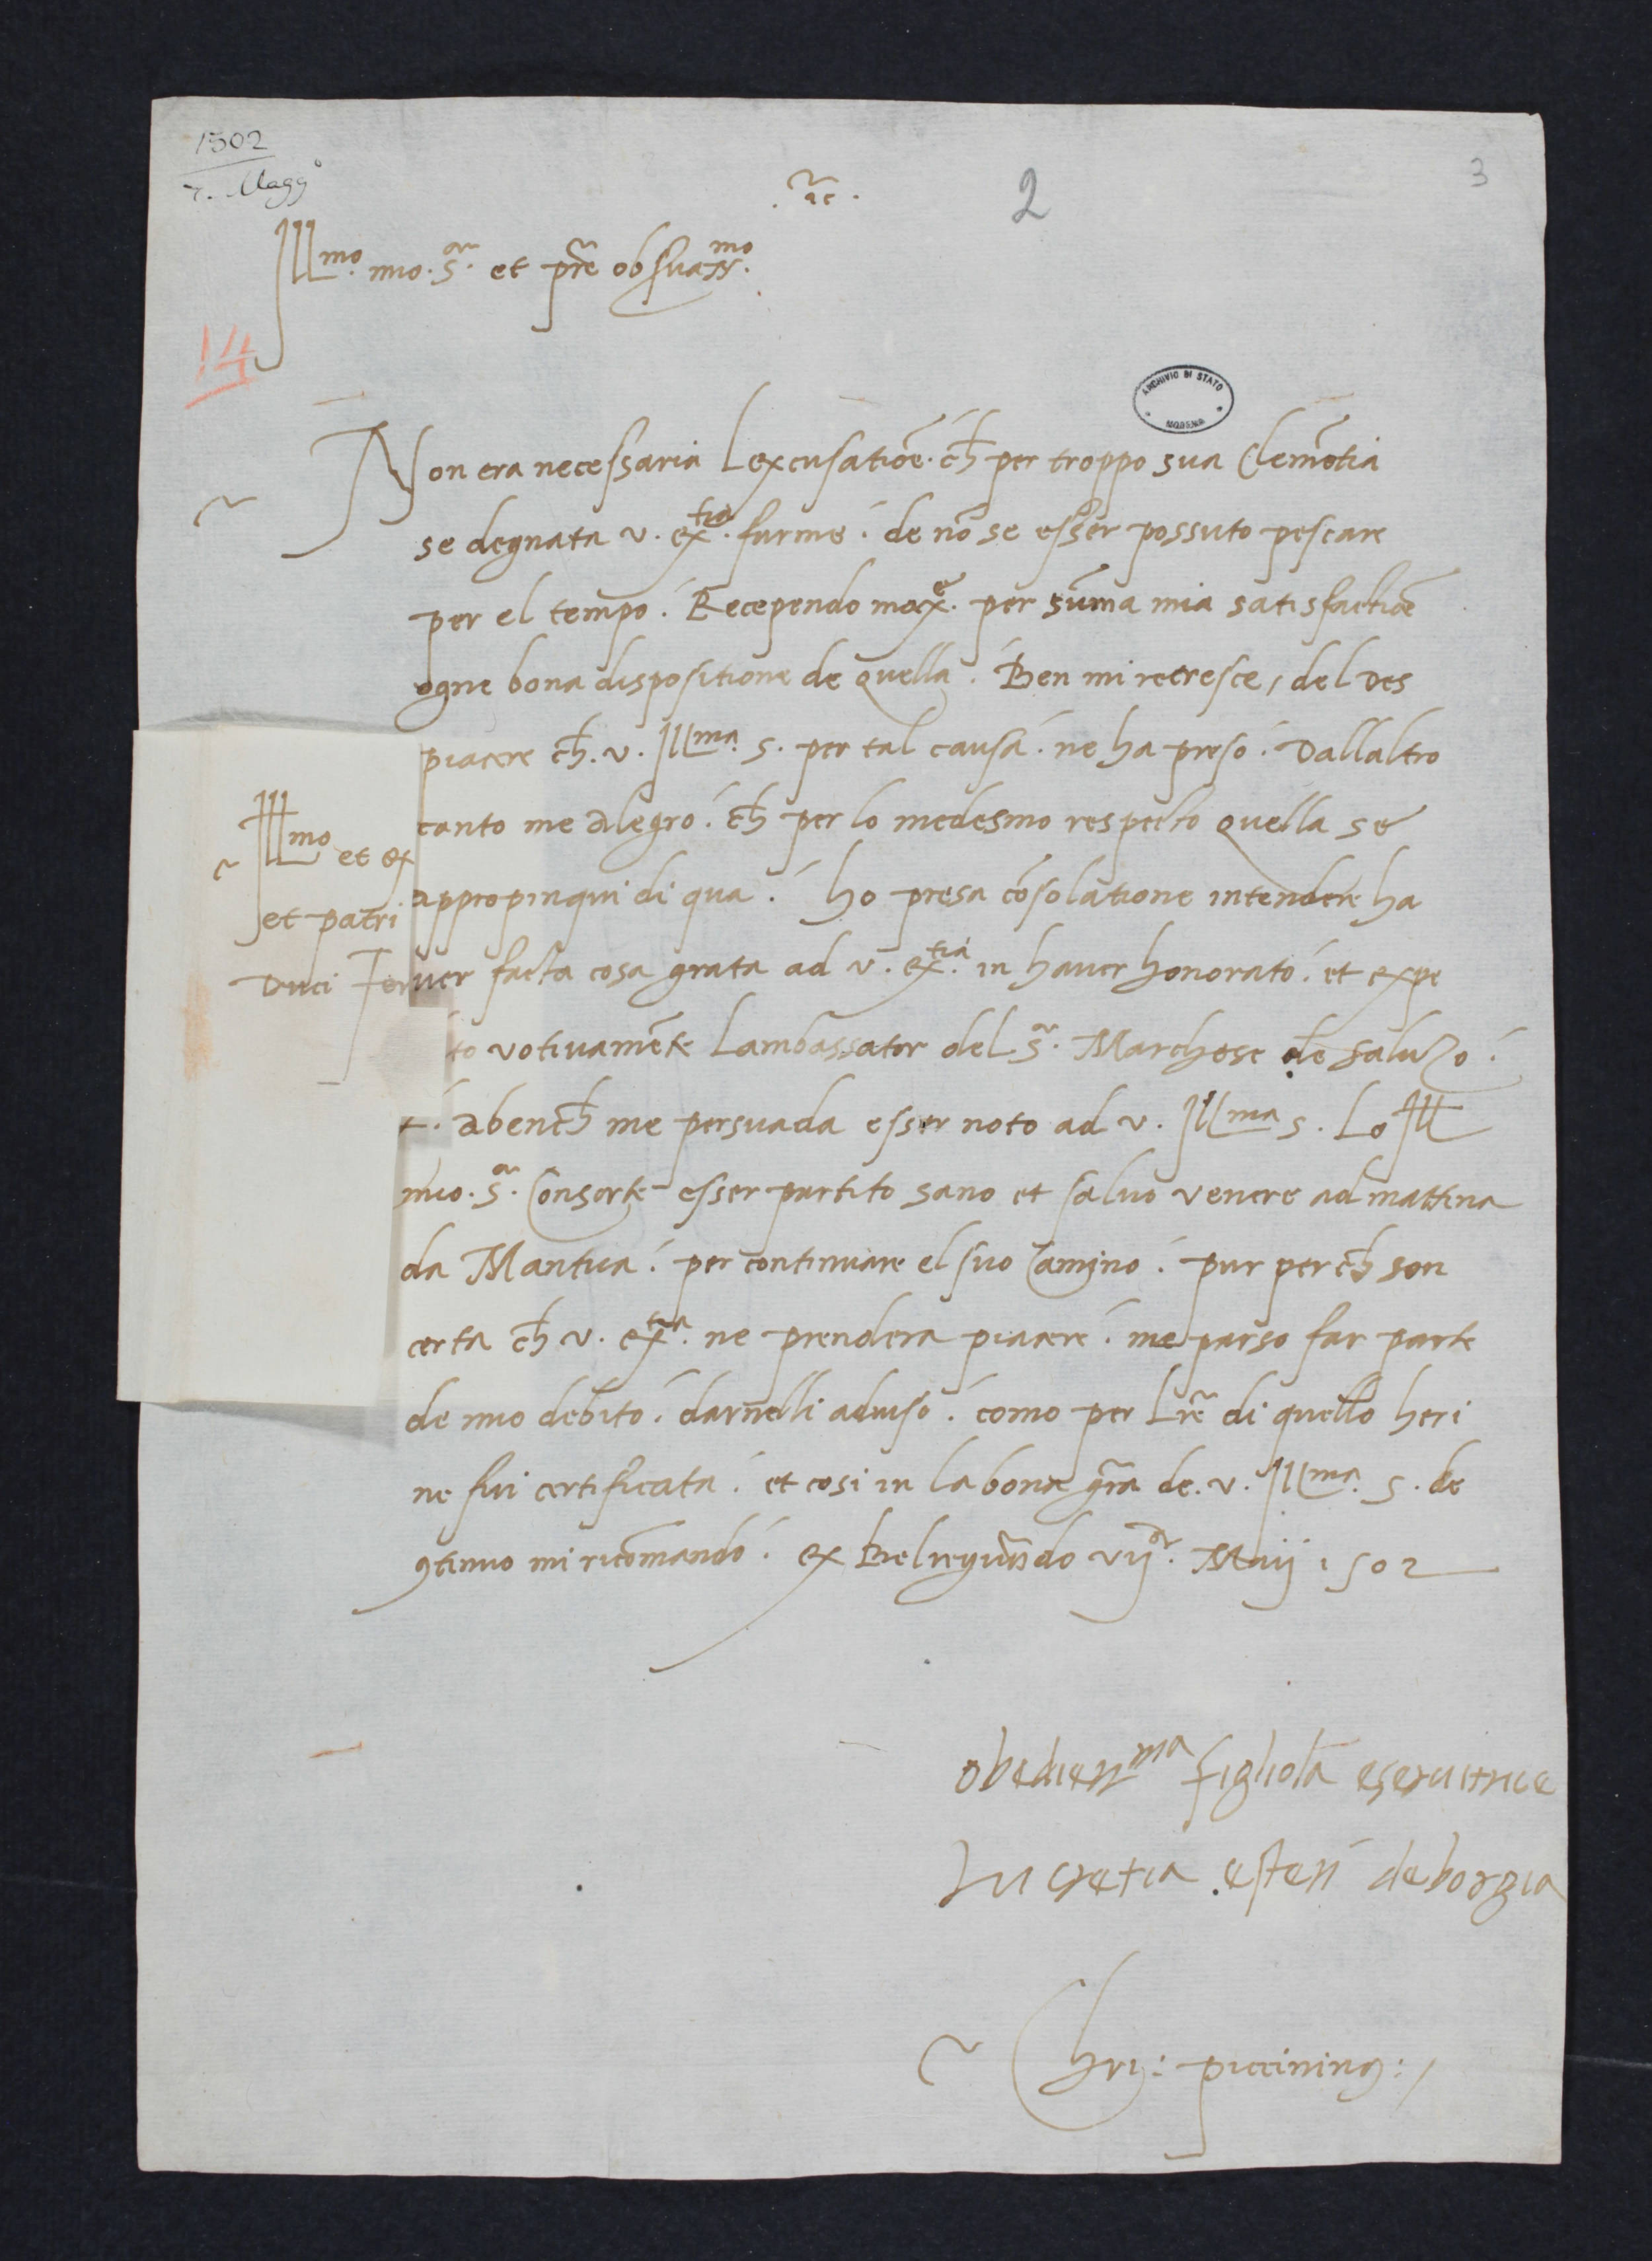 1502
7. Magg°
.ac.
2
3
Ill^mo. mio. S^or. et pre obsuass^mo.
14
ARCHIVIO DI STATO
MODENA
Non era necessaria Lexcusatioe. ch per troppo sua Clemētia
se degnata v. ex^tia. farme. de nō se esser possuto pescare
per el tempo. Recependo max^e. per sūma mia satisfactiōe
ogne bona dispositione de quella. Ben mi recresce, del des
piacere ch. v. Ill^ma. S. per tal causa. ne ha preso. Dallaltro
canto me alegro. ch per lo medesmo respecto quella se
appropinqui di qua. Ho presa cōsolatione intendere ha
uer facta cosa grata ad v. ex^tia. in haver honorato. et expe
to votivamēte Lambassator del S^or. Marchese de Saluzo.
abench me persuada esser noto ad v. Ill^ma S. Lo Ill
mio. S^or. Consorte esser partito sano et salvo venere ad mattina
da Mantua. per continuare el suo Camino. pur perch son
certa ch v. ex^tia. ne prendera piacere. me parso far parte
de mio debito. darnelli adviso. como per Lre di quello heri
ne fui certificata. et cosi in la bona gra de. v. Ill^ma. S. de
9tinuo mi ricōmando. ex Belreguardo vij. Maij 1502
Ill^mo et ex
et patri
Duci Fer
obedien^ma figliola eservitrice
Lucretia esten de borgia
Chri: piccinin9: